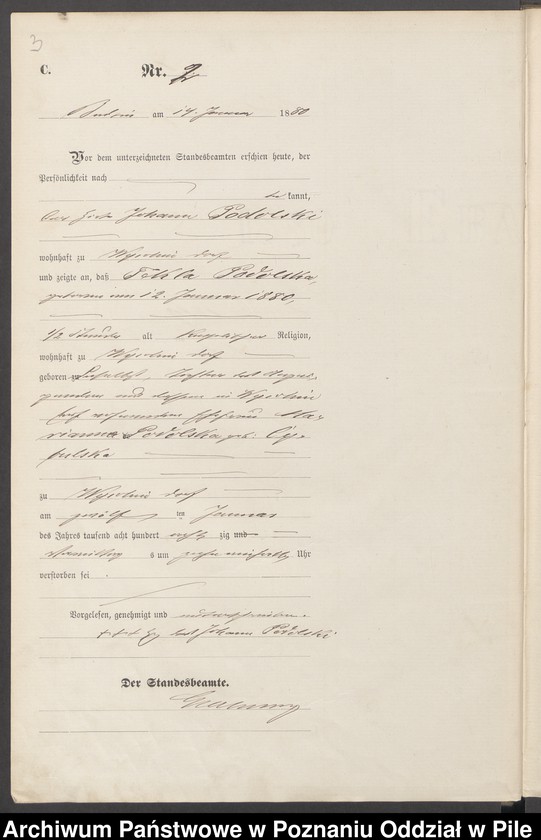 3
C. Nr. 2
am 14. Januar 1880
Vor dem unterzeichneten Standesbeamten erschien heute, der
Persönlichkeit nach
kannt,
Johann Podolski
wohnhaft zu dorf
und zeigte an, daß Tekla Podolska,
geboren am 12. Januar 1880,
1/2 Stunde alt katholischer Religion,
wohnhaft zu dorf
geboren zu daselbst, Tochter des
und dessen in
Ehefrau Ma-
rianna Podolska geb. Cy-
pulska
zu dorf
am zwölf ten Januar
des Jahres tausend acht hundert acht zig und
Vormittag s um zehn einhalb Uhr
verstorben sei
Vorgelesen, genehmigt und unterschrieben
+++ Johann Podolski
Der Standesbeamte.
Archiwum Państwowe w Poznaniu Oddział w Pile